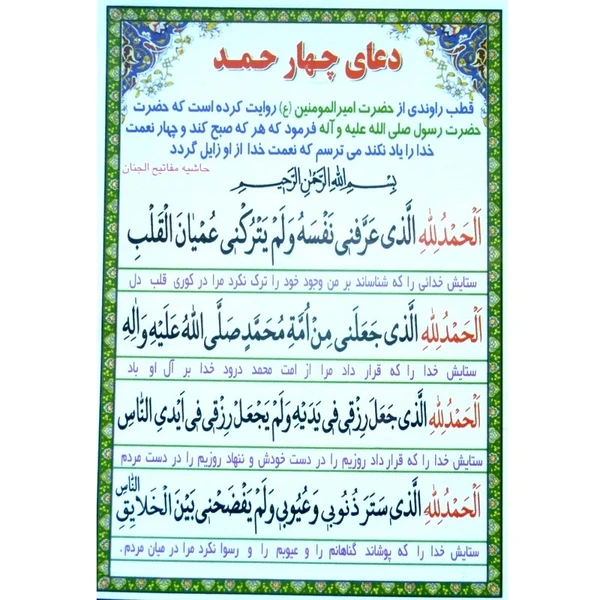 دعای چهار حمد
قطب راوندی از حضرت امیرالمومنین (ع) روایت کرده است که حضرت
حضرت رسول صلی الله علیه و آله فرمود که هر که صبح کند و چهار نعمت
خدا را یاد نکند می ترسم که نعمت خدا از او زایل گردد
حاشیه مفاتیح الجنان
بِسْمِ اللهِ الرَّحْمٰنِ الرَّحِيمِ
اَلْحَمْدُ لِلّٰهِ الَّذى عَرَّفَنى نَفْسَهُ وَلَمْ يَتْرُكْنى عُمْيٰانَ الْقَلْبِ
ستایش خدائی را که شناساند بر من وجود خود را ترک نکرد مرا در کوری قلب دل
اَلْحَمْدُ لِلّٰهِ الَّذى جَعَلَنى مِنْ اُمَّةِ مُحَمَّدٍ صَلَّى اللهُ عَلَيْهِ وَاٰلِهِ
ستایش خدا را که قرار داد مرا از امت محمد درود خدا بر آل او باد
اَلْحَمْدُ لِلّٰهِ الَّذى جَعَلَ رِزْقى فى يَدَيْهِ وَلَمْ يَجْعَلْ رِزْقى فى اَيْدِى النّٰاسِ
ستایش خدا را که قرار داد روزیم را در دست خودش و ننهاد روزیم را در دست مردم
اَلْحَمْدُ لِلّٰهِ الَّذى سَتَرَ ذُنُوبى وَعُيُوبى وَلَمْ يَفْضَحْنى بَيْنَ الْخَلٰايِقِ النّٰاسِ
ستایش خدا را که پوشاند گناهانم را و عیوبم را و رسوا نکرد مرا در میان مردم.